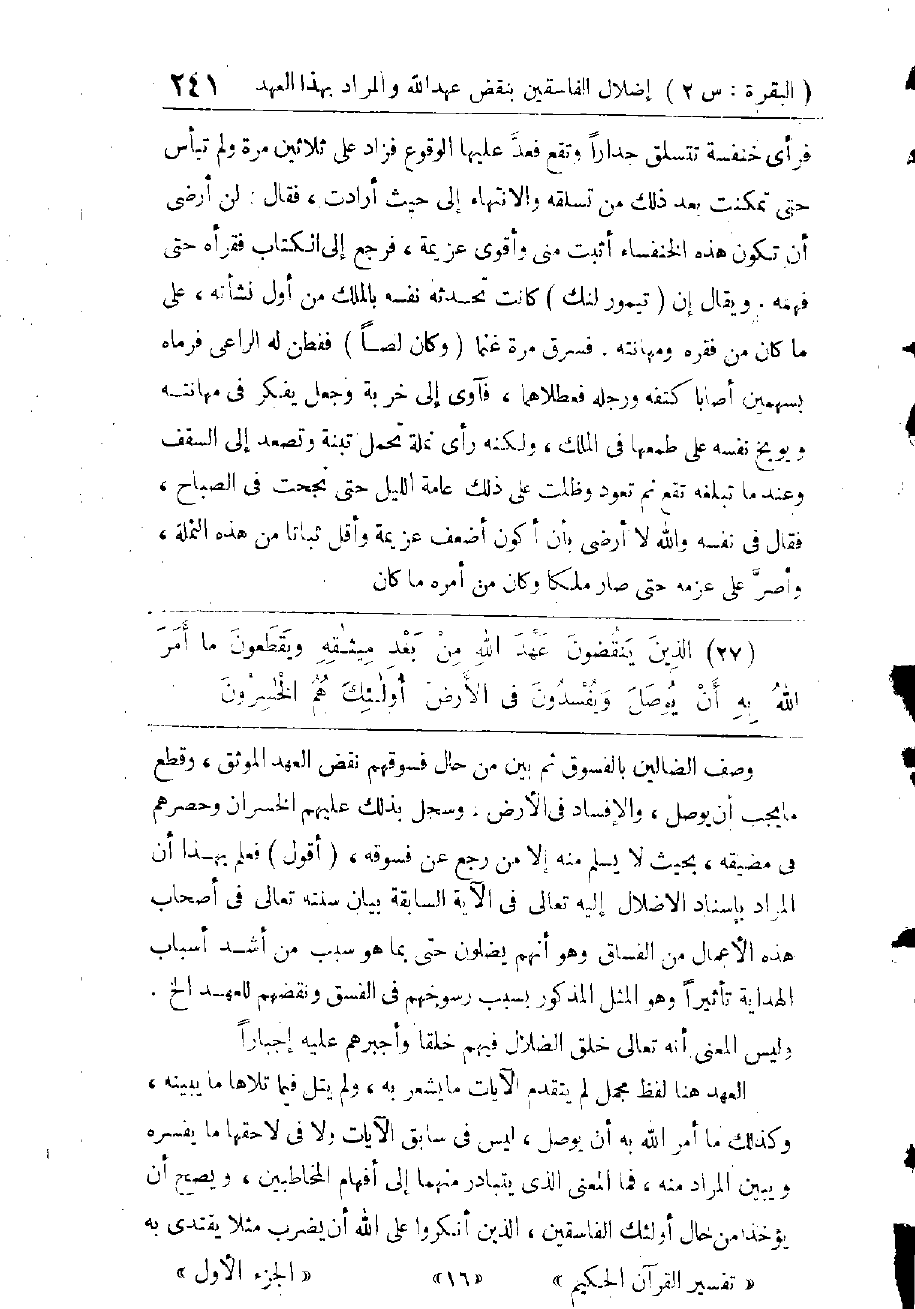 ( البقرة : س ٢ ) إضلال الفاسقين بنقض عهد الله والمراد بهذا العهد ٢٤١
فرأى خنفسة تتسلق جداراً وتقع فعدَّ عليها الوقوع فزاد على ثلاثين مرة ولم تيأس
حتى تمكنت بعد ذلك من تسلقه والانتهاء إلى حيث أرادت ، فقال : لن أرضى
أن تكون هذه الخنفساء أثبت منى وأقوى عزيمة ، فرجع إلى الكتاب فقرأه حتى
فهمه . ويقال إن ( تيمور لنك ) كانت تحدثه نفسه بالملك من أول نشأته ، على
ما كان من فقره ومهانته . فسرق مرة غنما ( وكان لصاً ) ففطن له الراعى فرماه
بسهمين أصابا كتفه ورجله فعطلاهما ، فآوى إلى خربة وجعل يفكر فى مهانته
ويوبخ نفسه على طمعها فى الملك ، ولكنه رأى نملة تحمل تبنة وتصعد إلى السقف
وعند ما تبلغه تقع ثم تعود وظلت على ذلك عامة الليل حتى نجحت فى الصباح ،
فقال فى نفسه والله لا أرضى بأن أكون أضعف عزيمة وأقل ثباتا من هذه النملة ،
وأصرَّ على عزمه حتى صار ملكا وكان من أمره ما كان
(٢٧) الَّذِينَ يَنْقُضُونَ عَهْدَ اللهِ مِنْ بَعْدِ مِيثَـٰقِهِ وَيَقْطَعُونَ مَا أَمَرَ
اللهُ بِهِ أَنْ يُوصَلَ وَيُفْسِدُونَ فِى الْأَرْضِ أُولَـٰئِكَ هُمُ الْخَـٰسِرُونَ
وصف الضالين بالفسوق ثم بين من حال فسوقهم نقض العهد الموثق ، وقطع
ما يجب أن يوصل ، والإفساد فى الأرض . وسجل بذلك عليهم الخسران وحصرهم
فى مضيقه ، بحيث لا يسلم منه إلا من رجع عن فسوقه ، ( أقول ) فعلم بهذا أن
المراد بإسناد الاضلال إليه تعالى فى الآية السابقة بيان سنته تعالى فى أصحاب
هذه الأعمال من الفساق وهو أنهم يضلون حتى بما هو سبب من أشد أسباب
الهداية تأثيراً وهو المثل المذكور بسبب رسوخهم فى الفسق ونقضهم للعهد الخ .
وليس المعنى أنه تعالى خلق الضلال فيهم خلقاً وأجبرهم عليه إجباراً
العهد هنا لفظ مجمل لم يتقدم الآيات ما يشعر به ، ولم يتل فيما تلاها ما يبينه ،
وكذلك ما أمر الله به أن يوصل ، ليس فى سابق الآيات ولا فى لاحقها ما يفسره
ويبين المراد منه ، فما المعنى الذى يتبادر منهما إلى أفهام المخاطبين ، ويصح أن
يؤخذ من حال أولئك الفاسقين ، الذين أنكروا على الله أن يضرب مثلا يقتدى به
« تفسير القرآن الحكيم » «١٦» « الجزء الأول »